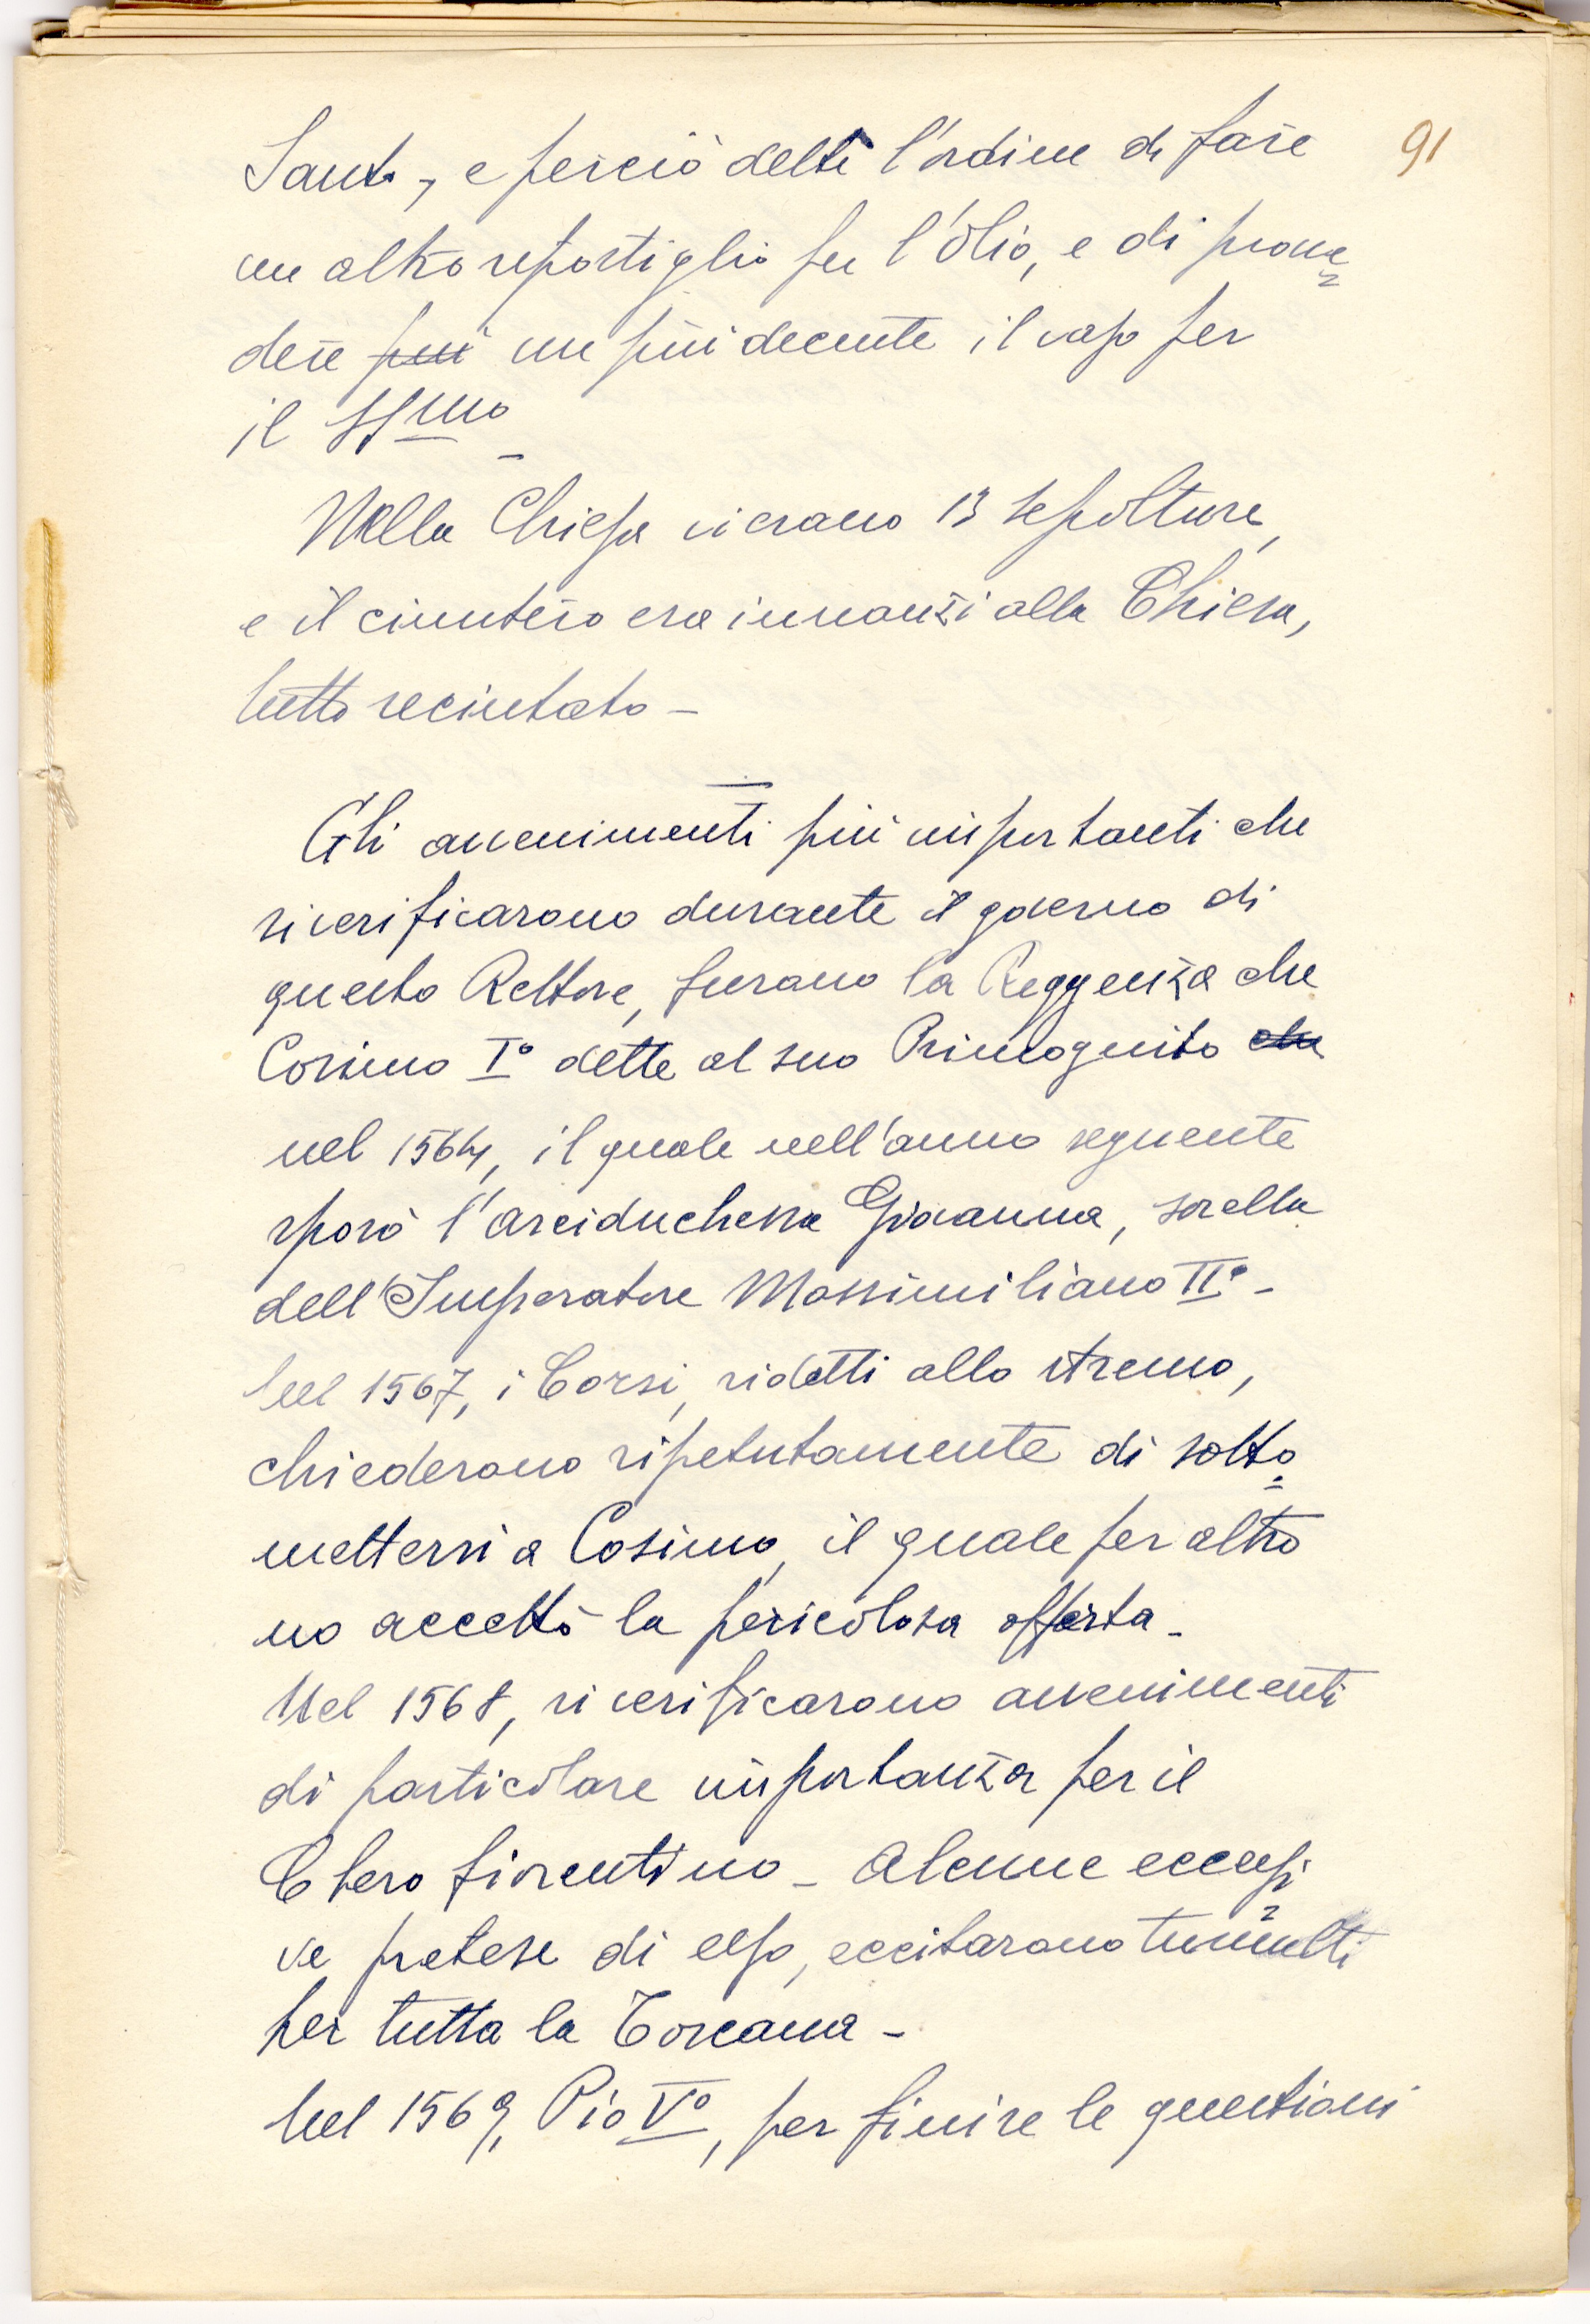 91
Santo, e perciò dette l'ordine di fare
un altro ripostiglio per l'Olio, e di provve=
dere più un più decente il vaso per
il SS.mo -
Nella Chiesa vi erano 13 sepolture,
e il cimitero era innanzi alla Chiesa,
tutto recintato -
Gli avvenimenti più importanti che
si verificarono durante il governo di
questo Rettore, furano la Reggenza che
Cosimo I° dette al suo Primogenito che
nel 1564, il quale nell'anno seguente
sposò l'arciduchessa Giovanna, sorella
dell'Imperatore Massimiliano II° -
Nel 1567, i Corsi, ridotti allo stremo,
chiederono ripetutamente di sotto=
mettersi a Cosimo, il quale per altro
no accettò la pericolosa offerta -
Nel 1568, si verificarono avvenimenti
di particolare importanza per il
Clero fiorentino - Alcune eccessi=
ve pretese di esso, eccitarono tumulti
per tutta la Toscana -
Nel 1569, Pio V°, per finire le questioni